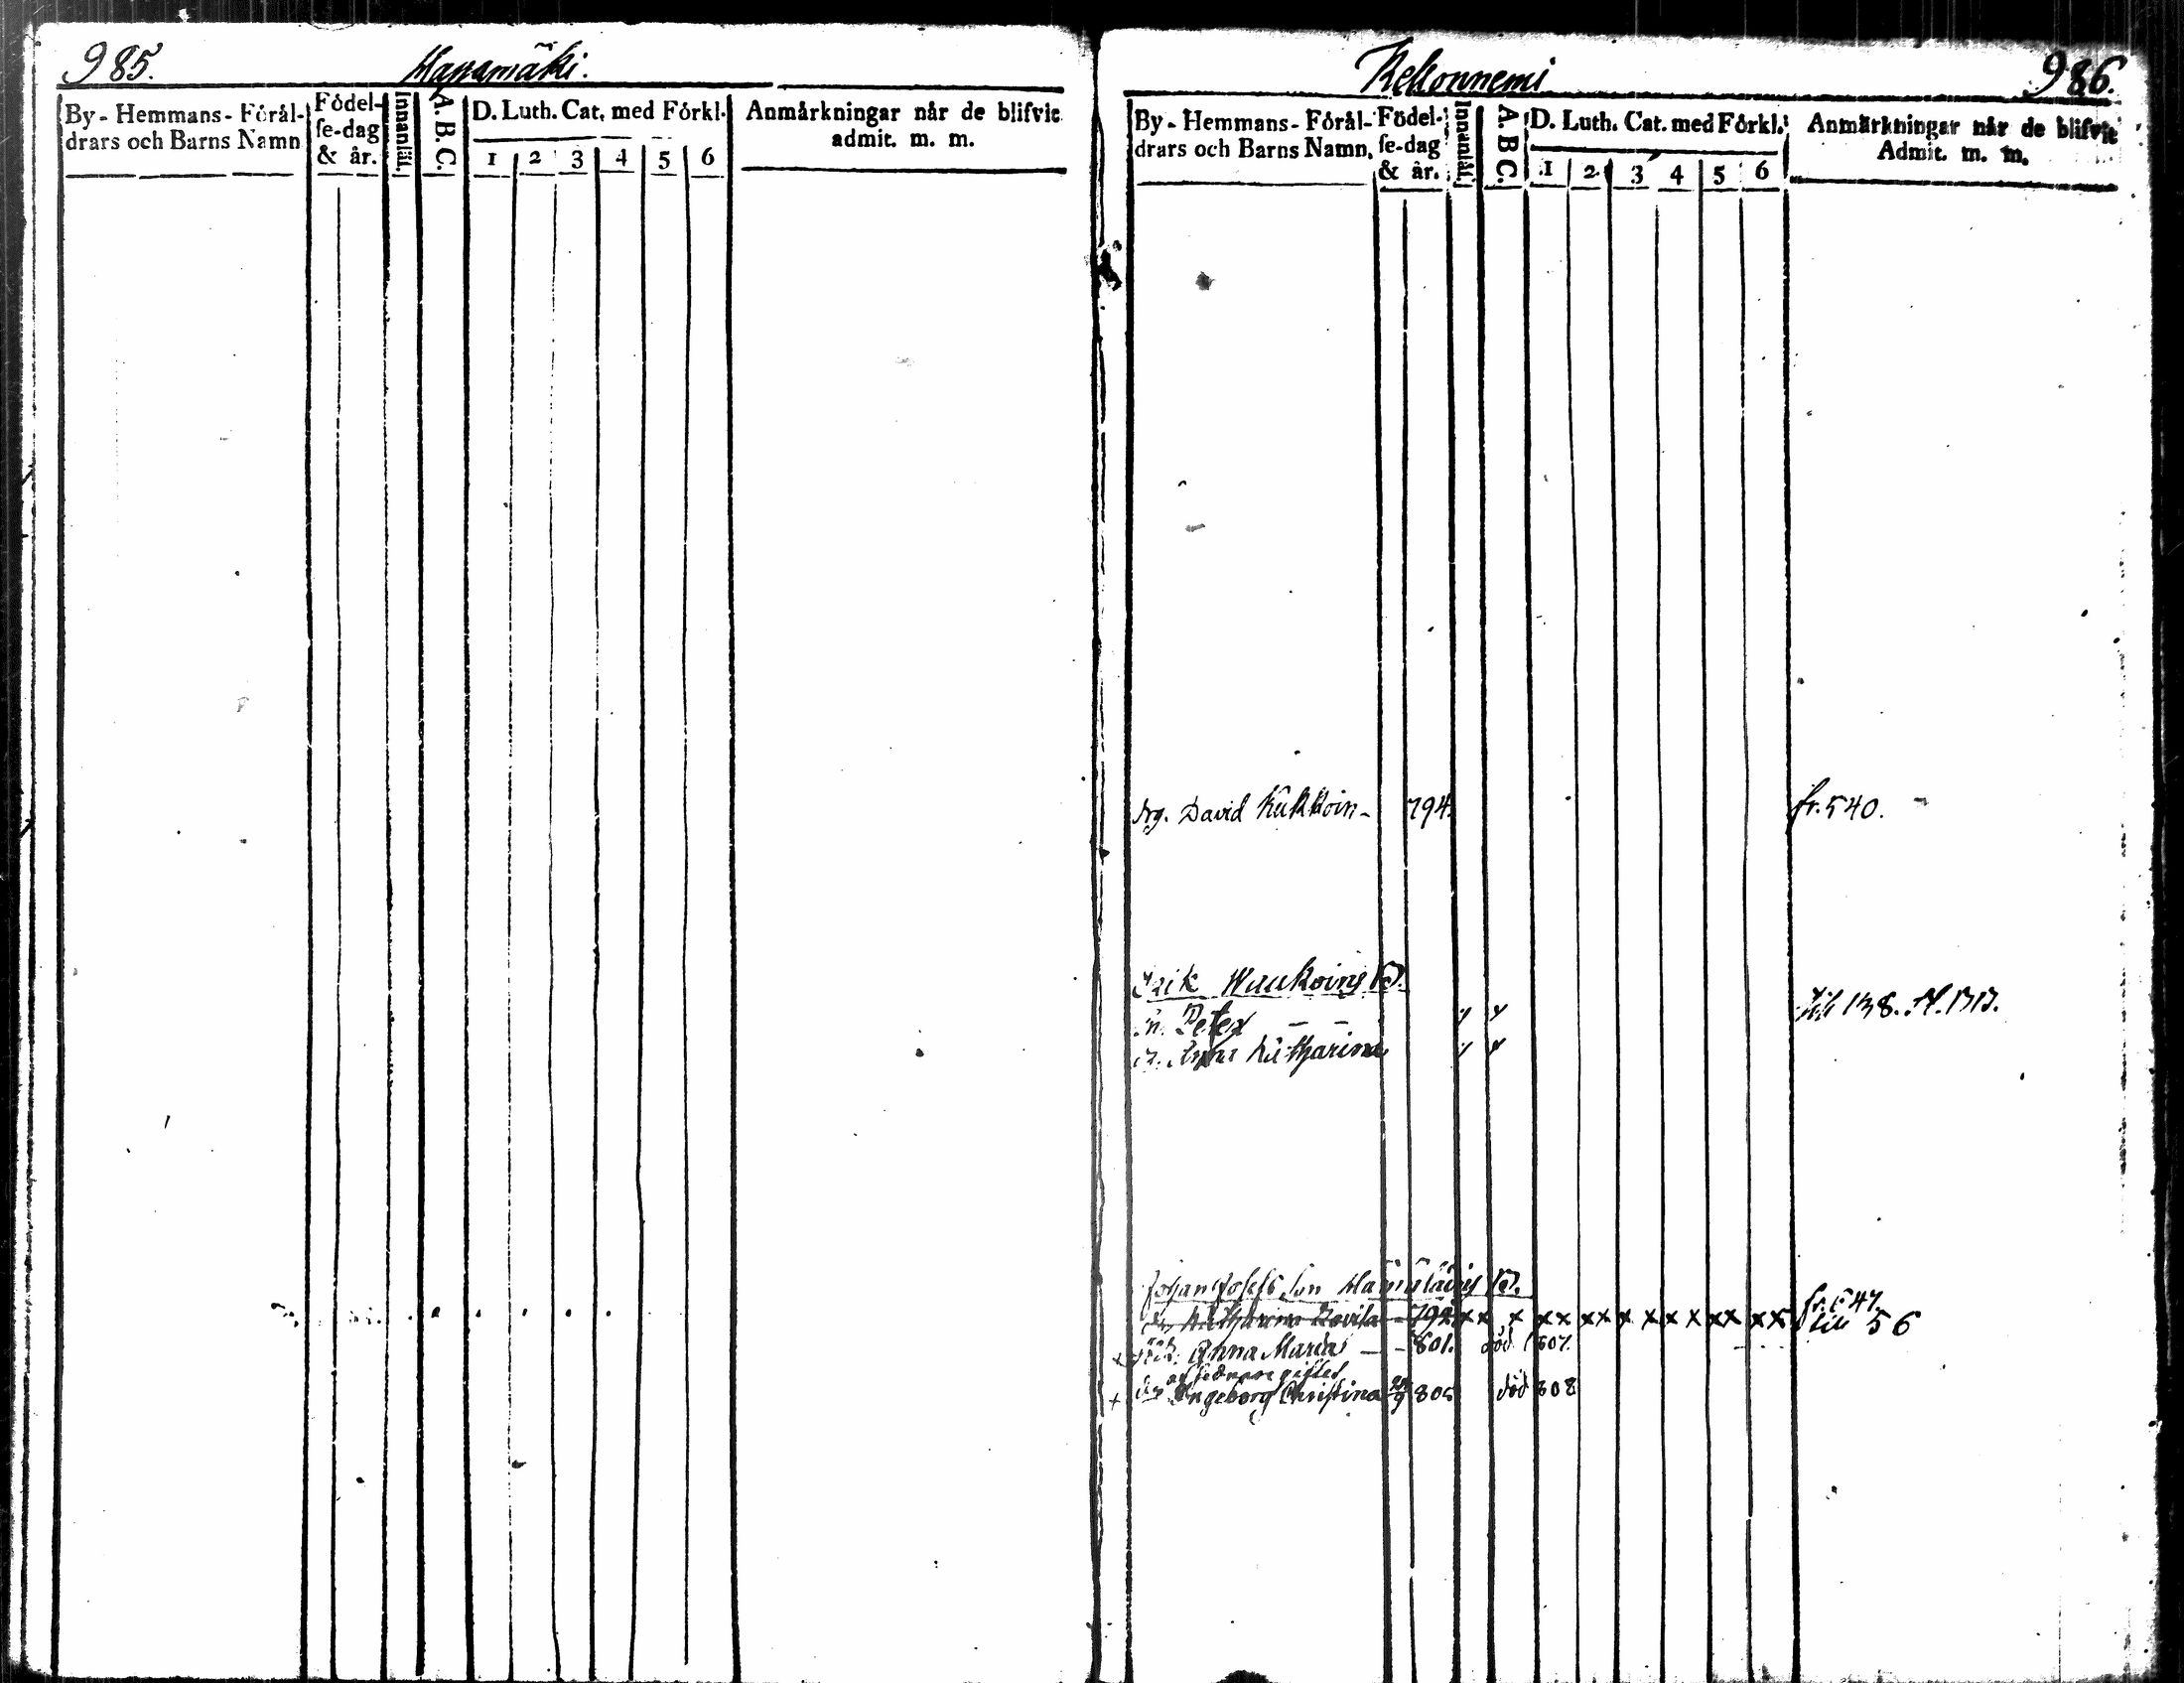 985.
Haapamäki.
By- Hemmans- Förål-
drars och Barns Namn
Födel-
se-dag
& år.
Innanläs.
A. B. C.
D. Luth. Cat. med Förkl.
1 2 3 4 5 6
Anmärkningar når de blifvit
admit. m. m.
Kekonnemi
986.
By- Hemmans- Förål-
drars och Barns Namn.
Födel-
se-dag
& år.
Innanläs.
A B C.
D. Luth. Cat. med Förkl.
1 2 3 4 5 6
Anmärkningar når de blifvit
Admit. m. m.
drg. David Kukkoin- 794. fr. 540.
Erik Waukoins
Peter
Anna Katharina
till 138.
Johan Josefs Son
Katharina 794 x x x x x x x x x x x x x x x fr. 547.
till 56
Anna Maria - - 801. död 807.
Ingeborg Christina 805 död 808